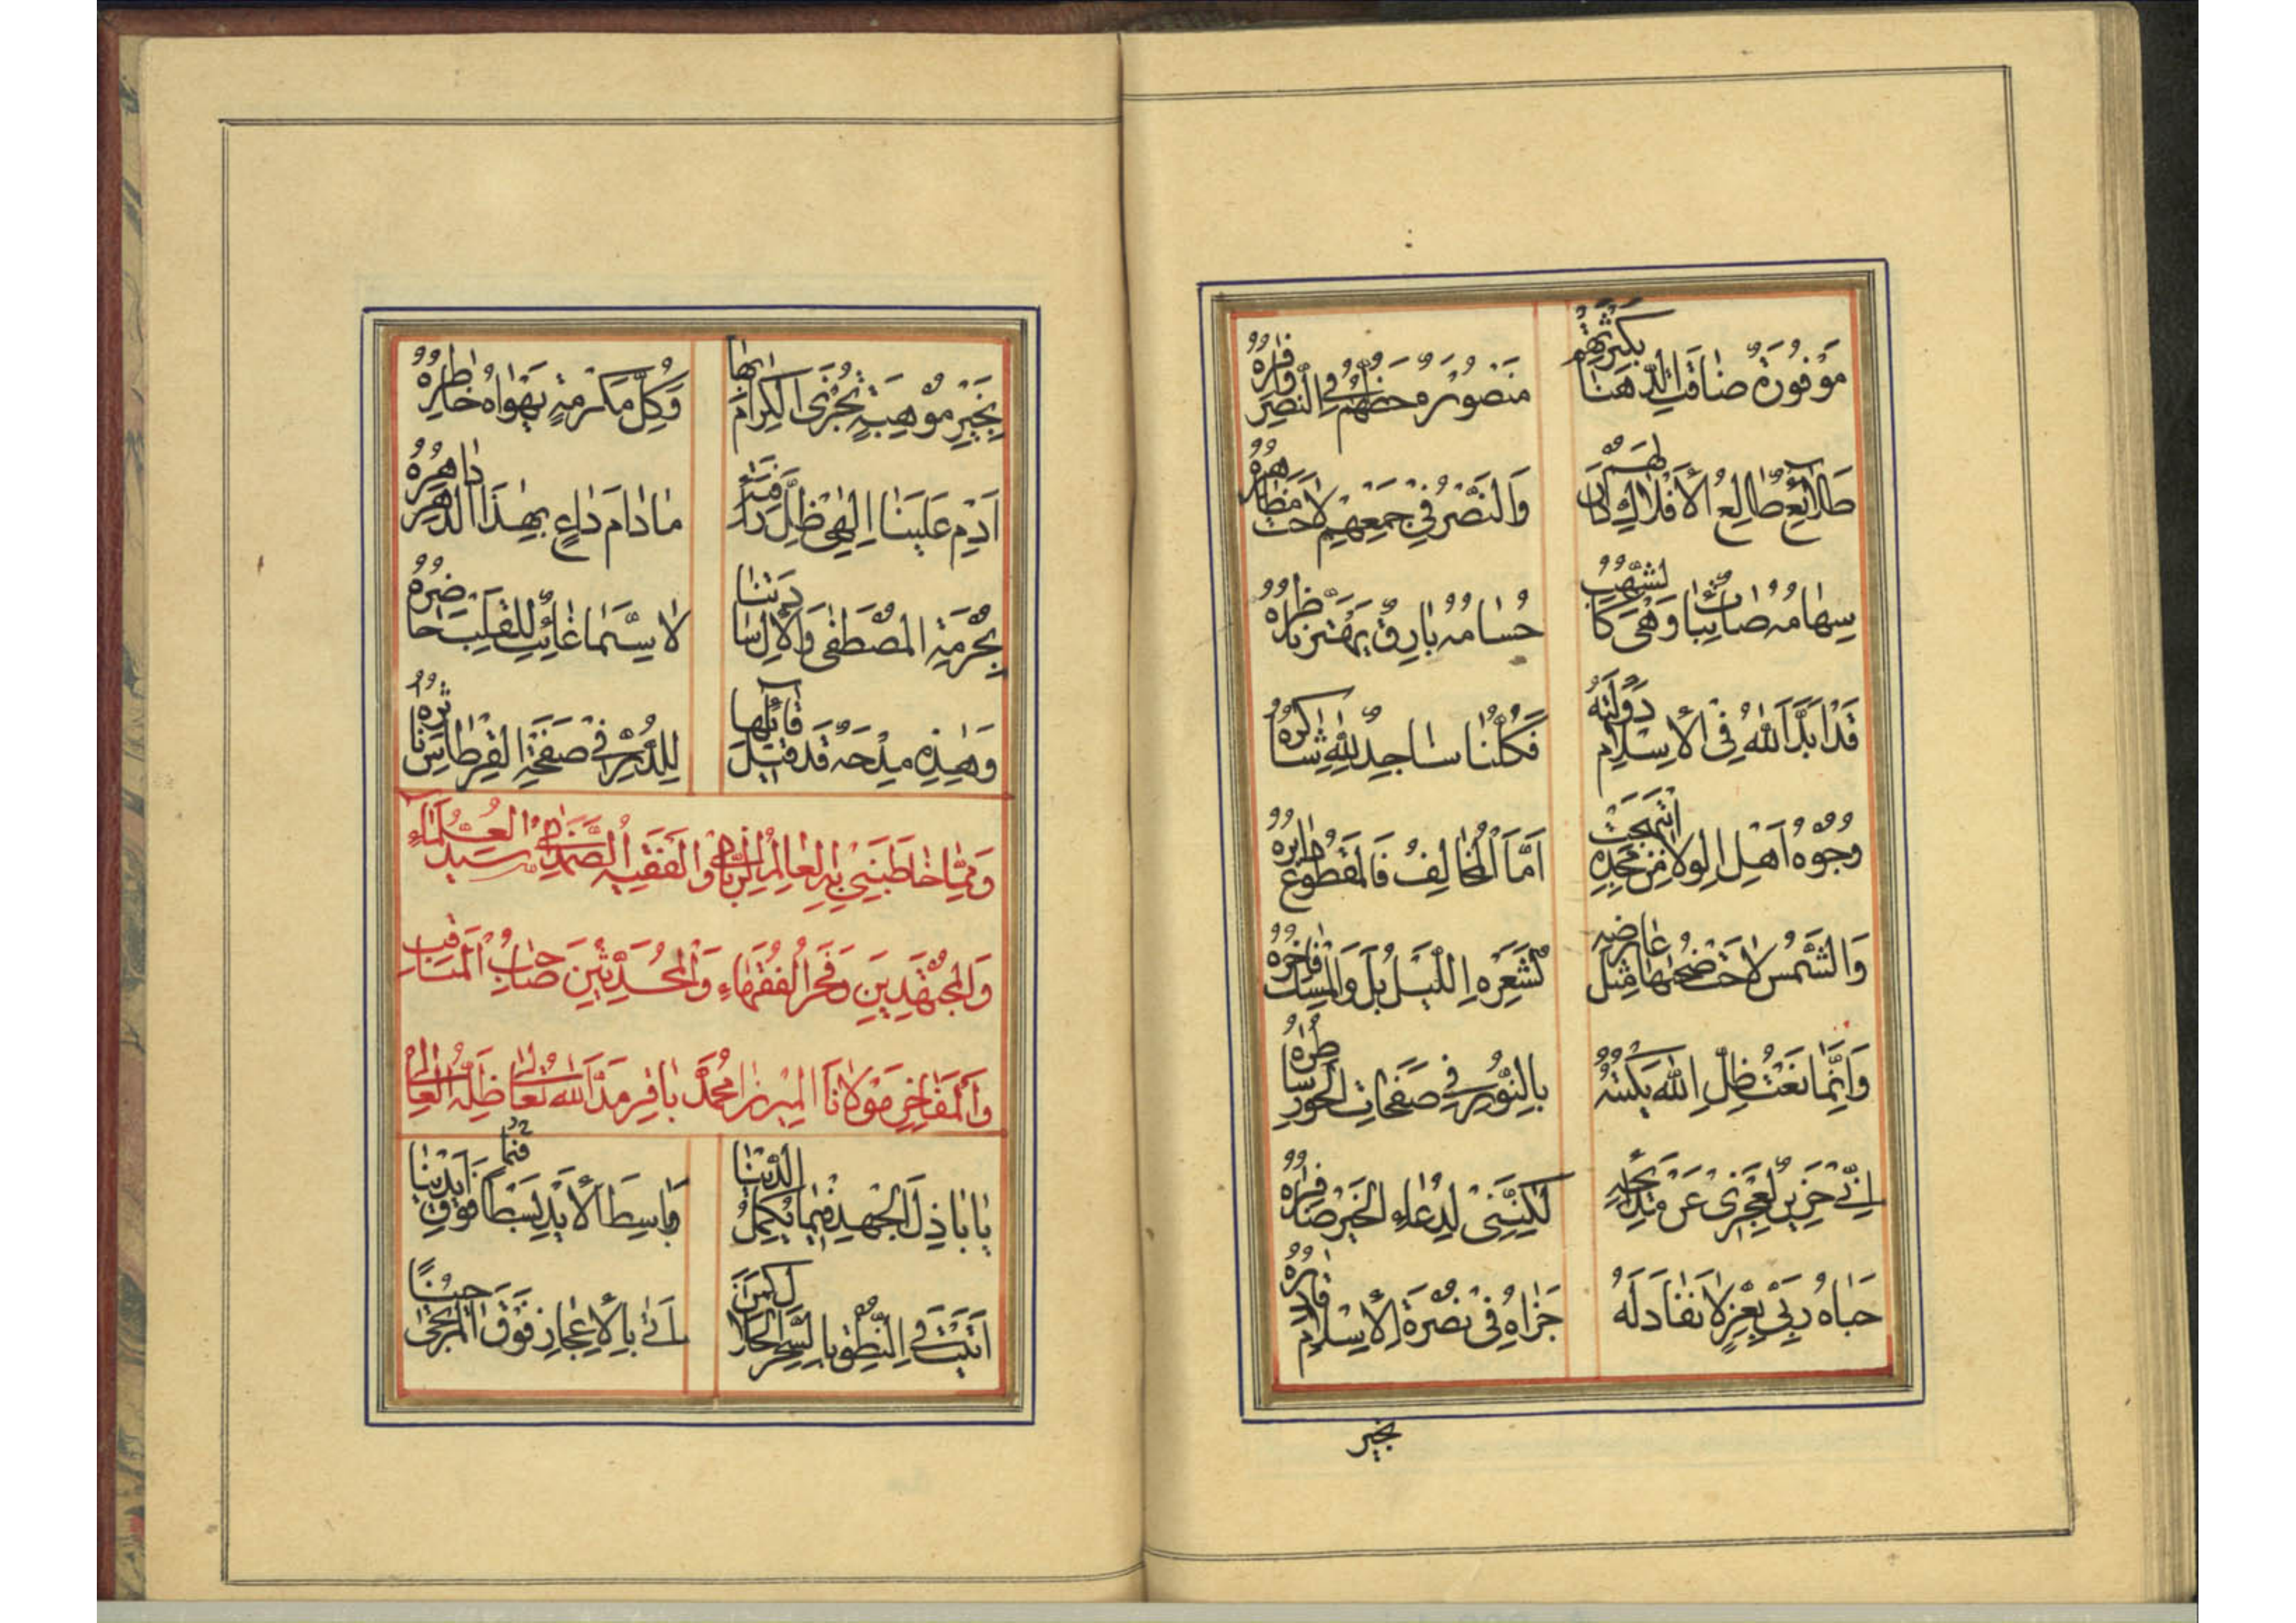 مَوْفُورَةٌ ضٰاقَتِ الدَّهْنٰا بِكَثْرَتِهِمْ
مَنْصُورَةٌ حَظُّهُمْ فِي النَّصْرِ وٰافِرُهُ
طَلٰائِعٌ طٰالِعُ الْأَفْلٰاكِ دَانَ لَهُمْ
وَالنَّصْرُ فِي جَمْعِهِمْ لٰاحَتْ مَظٰاهِرُهُ
سِهٰامُهُ صٰائِبٰاتٌ وَهْيَ كَالشُّهُبِ
حُسٰامُهُ بٰارِقٌ يَهْتَزُّ بٰاظِرُهُ
قَدْ اَبَّدَ اللهُ فِي الْأِسْلٰامِ دَوْلَتَهُ
فَكُلُّنٰا سٰاجِدٌ لِلّٰهِ شٰاكِرُهُ
وُجُوهُ اَهْلِ الْوِلٰا مِنْ مَجْدِهِ ابْتَهَجَتْ
اَمَّا الْمُخٰالِفُ فَالْمَقْطُوعُ دٰابِرُهُ
وَالشَّمْسُ لٰاحَتْ ضُحٰهٰا مِثْلَ عٰارِضِهِ
كَشَعْرِهِ اللَّيْلُ بَلْ وَالْمِسْكُ فٰاخِرُهُ
وَاِنَّمٰا نَعْتُ ظِلِّ اللهِ يَكْتُبُهُ
بِالنُّورِ فِي صَفَحٰاتِ الْحُورِ سٰاطِرُهُ
اِنِّي حَزِينٌ لِعَجْزِي عَنْ مَدٰائِحِهِ
لٰكِنَّنِي لِدُعٰاءِ الْخَيْرِ ضٰافِرُهُ
حَبٰاهُ رَبِّي بِعِزٍّ لٰا نَفٰادَ لَهُ
جَزٰاهُ فِي نُصْرَةِ الْأِسْلٰامِ قٰادِرُهُ
بخير
بِخَيْرِ مَوْهِبَةٍ تُجْزَى الْكِرٰامُ بِهٰا
وَكُلِّ مَكْرُمَةٍ يَهْوٰاهُ خٰاطِرُهُ
اَدِمْ عَلَيْنٰا اِلٰهِي ظِلَّ رَأْفَتِهِ
مٰا دٰامَ دٰاعٍ بِهٰذَا الدَّهْرِ دٰاهِرُهُ
بِحُرْمَةِ الْمُصْطَفٰى وَالْأٰلِ سٰادَتِنٰا
لٰا سِيَّمٰا غٰائِبٍ لِلْقَلْبِ حٰاضِرُهُ
وَهٰذِهِ مِدْحَةٌ قَدْ قِيلَ قٰائِلُهٰا
لِلدُّرِّ فِي صَفْحَةِ الْقِرْطٰاسِ نٰاثِرُهُ
وَمِمّٰا خٰاطَبَنِي بِهِ الْعٰالِمُ الرَّبّٰانِي وَالْفَقِيهُ الصَّمَدٰانِي سَيِّدُ الْعُلَمٰاءِ
وَالْمُجْتَهِدِينَ وَفَخْرُ الْفُقَهٰاءِ وَالْمُحَدِّثِينَ صٰاحِبُ الْمَنٰاقِبِ
وَالْمَفٰاخِرِ مَوْلٰانَا الْمِيرْزٰا مُحَمَّد بٰاقِر مَدَّ اللهُ تَعٰالٰى ظِلَّهُ الْعٰالِي
يٰا بٰاذِلَ الْجُهْدِ فِيمٰا يُكْمِلُ الدِّينٰا
وَبٰاسِطَ الْأَيْدِ بَسْطًا فَوْقَ اَيْدِينٰا
اَتَيْتَ فِي النُّطْقِ بِالسِّحْرِ الْحَلٰالِ
اَتٰى بِالْأِعْجٰازِ فَوْقَ الْمُرْتَجٰى حِينًا